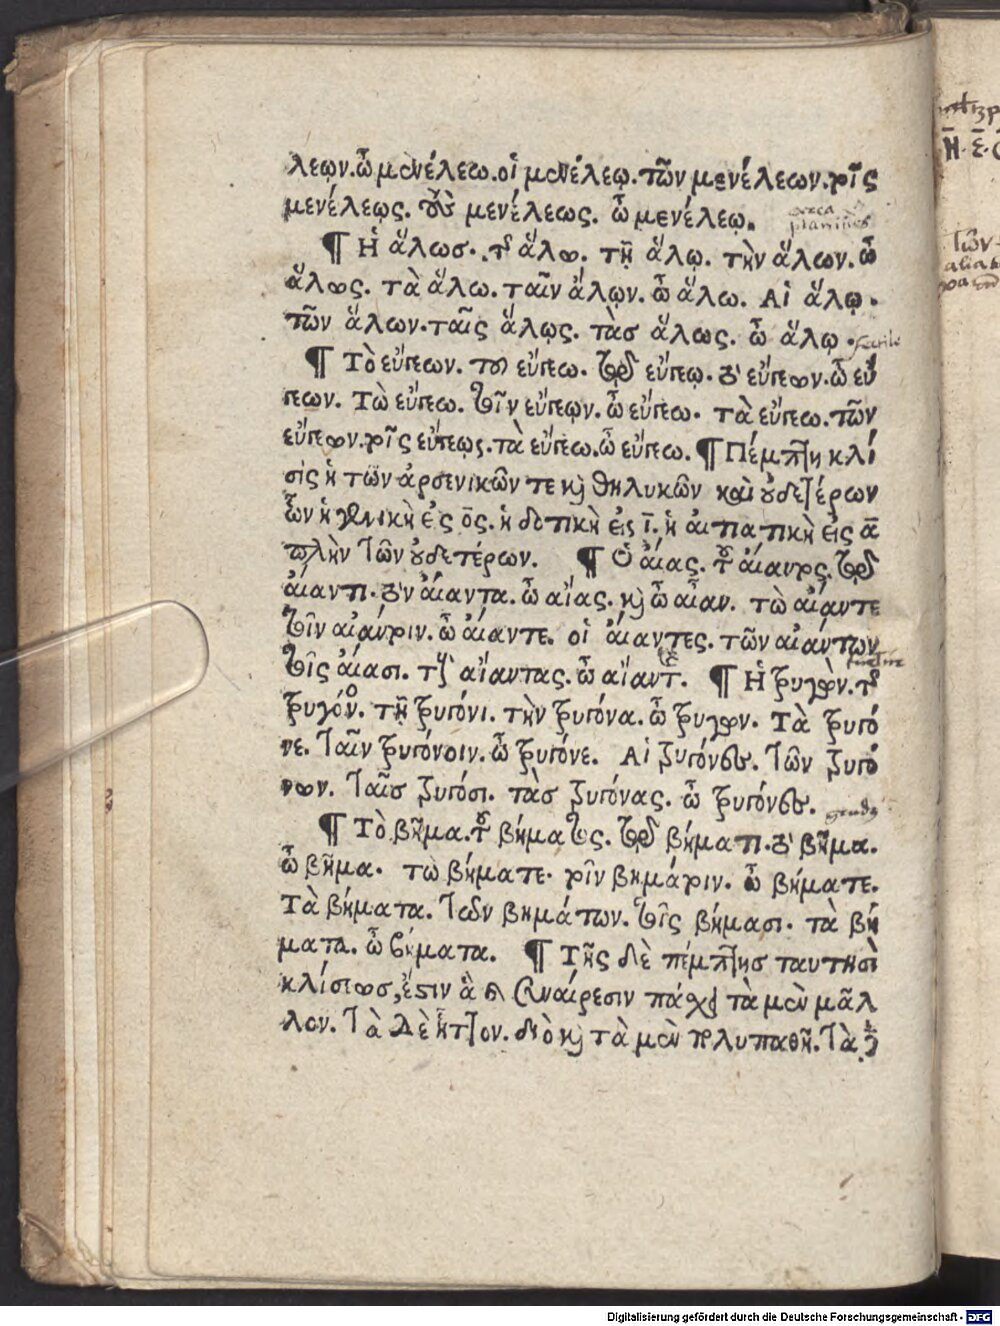 λεῳν. ὦ μενέλεω. οἱ μενέλεῳ. τῶν μενέλεων. τοῖς
μενέλεῳς. τοὺς μενέλεως. ὦ μενέλεῳ.
area
planities
¶ Ἡ ἅλωσ. τῆς ἅλω. τῇ ἅλῳ. τὴν ἅλων. ὦ
ἅλως. τὰ ἅλω. ταῖν ἅλῳν. ὦ ἅλω. Αἱ ἅλῳ.
τῶν ἅλων. ταῖς ἅλῳς. τὰσ ἅλως. ὦ ἅλῳ.
¶ Τὸ εὔγεων. τοῦ εὔγεω. τῷ εὔγεῳ. τὸ εὔγεων. ὦ εὔ
γεων. Τὼ εὔγεω. τοῖν εὔγεῳν. ὦ εὔγεω. τὰ εὔγεω. τῶν
εὔγεων. τοῖς εὔγεῳς. τὰ εὔγεω. ὦ εὔγεω. ¶ Πέμπτη κλί
σις ἡ τῶν ἀρσενικῶν τε καὶ θηλυκῶν καὶ οὐδετέρων
ὧν ἡ γενικὴ εἰς ος. ἡ δοτικὴ εἰς ι. ἡ αἰτιατικὴ εἰς α
πλὴν τῶν οὐδετέρων. ¶ Ὁ αἴας. τοῦ αἴαντος. τῷ
αἴαντι. τὸν αἴαντα. ὦ αἴας. καὶ ὦ αἶαν. τὼ αἴαντε
τοῖν αἰάντοιν. ὦ αἴαντε. οἱ αἴαντες. τῶν αἰάντων
τοῖς αἴασι. τοὺς αἴαντας. ὦ αἴαντες. ¶ Ἡ τρυγὼν. τῆς
τρυγόνος. τῇ τρυγόνι. τὴν τρυγόνα. ὦ τρυγὼν. Τὰ τρυγό
νε. ταῖν τρυγόνοιν. ὦ τρυγόνε. Αἱ τρυγόνες. τῶν τρυγό
νων. ταῖσ τρυγόσι. τὰσ τρυγόνας. ὦ τρυγόνες.
¶ Τὸ βῆμα. τοῦ βήματος. τῷ βήματι. τὸ βῆμα.
ὦ βῆμα. τὼ βήματε. τοῖν βημάτοιν. ὦ βήματε.
Τὰ βήματα. τῶν βημάτων. τοῖς βήμασι. τὰ βή
ματα. ὦ βήματα. ¶ Τῆς δὲ πέμπτησ ταύτησὶ
κλίσεωσ, ἔστιν ἃ συναίρεσιν πάσχει τὰ μὲν μᾶλ
λον. τὰ δὲ ἧττον. διὸ καὶ τὰ μὲν ὁλοπαθῆ. τὰ